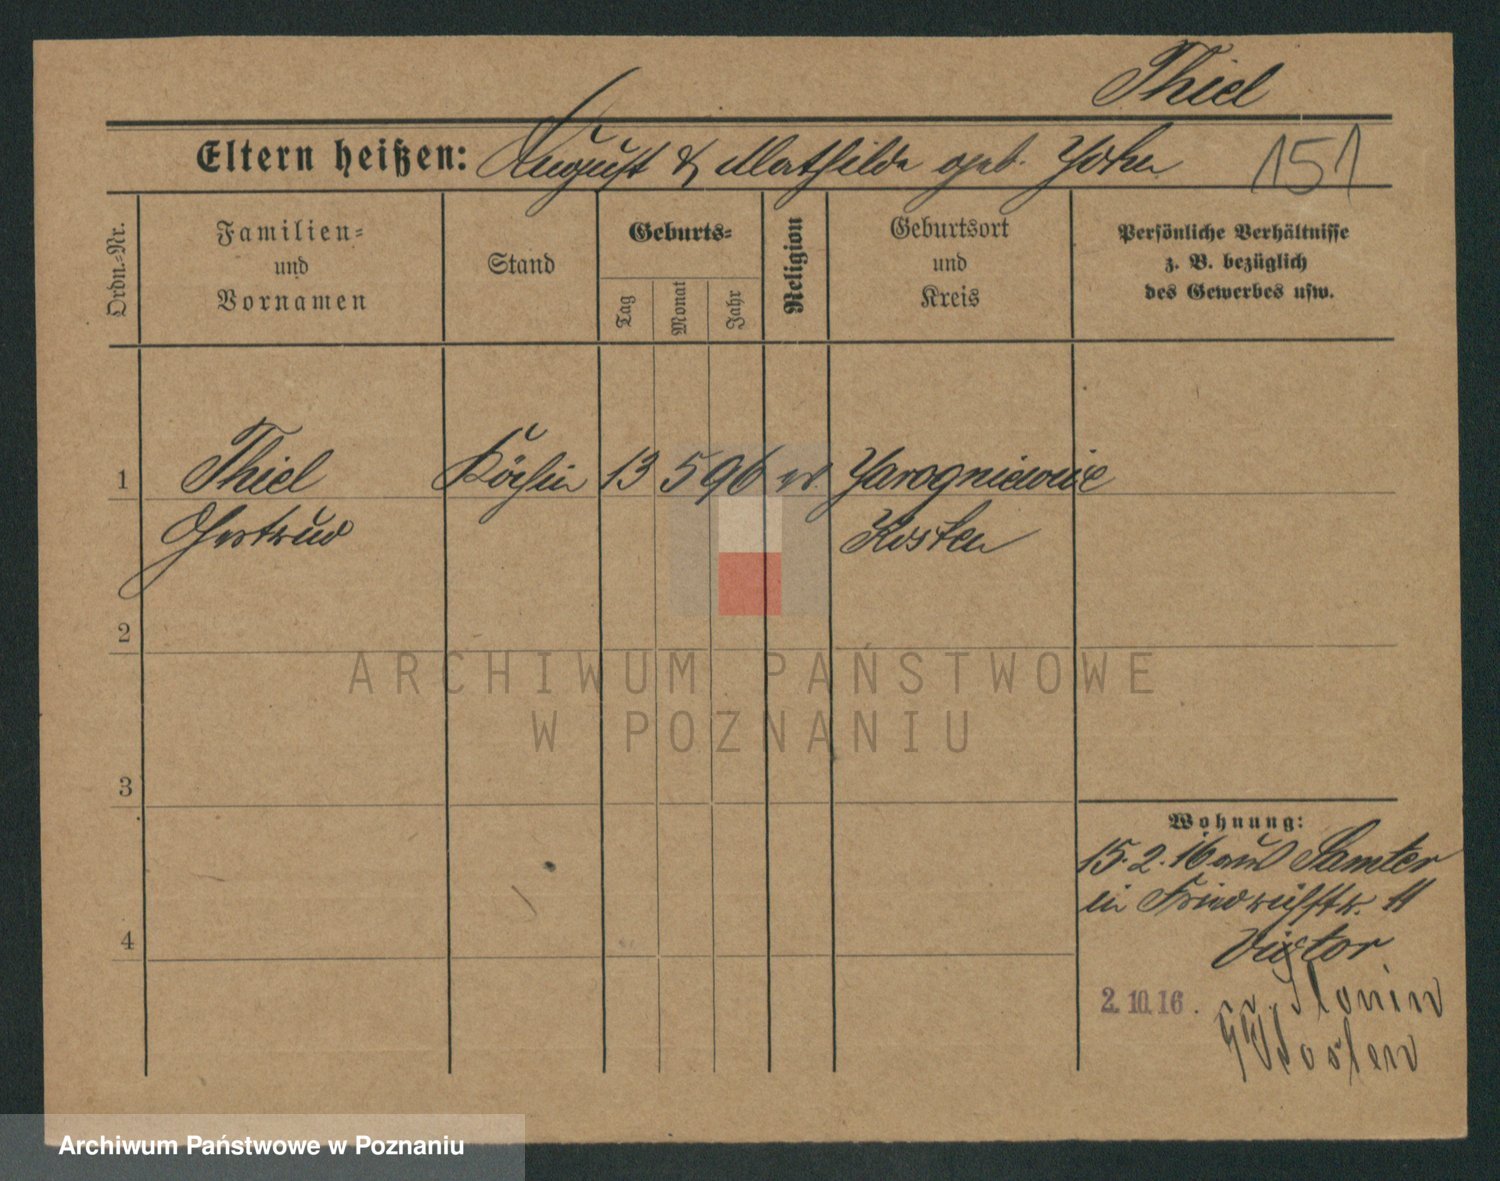 Thiel
Eltern heißen: August & Mathilde geb.
151
Ordn.-Nr.
Familien-
und
Vornamen
Stand
Geburts-
Tag
Monat
Jahr
Religion
Geburtsort
und
Kreis
Persönliche Verhältnisse
z. B. bezüglich
des Gewerbes usw.
1
Thiel
Köchin
13
5
96
ev
Jarogniewice
Gertrud
Kosten
2
ARCHIWUM PAŃSTWOWE
W POZNANIU
3
Wohnung:
15.2.16 aus Samter
in Friedrichstr. 11
Victor
4
2. 10. 16.
Archiwum Państwowe w Poznaniu